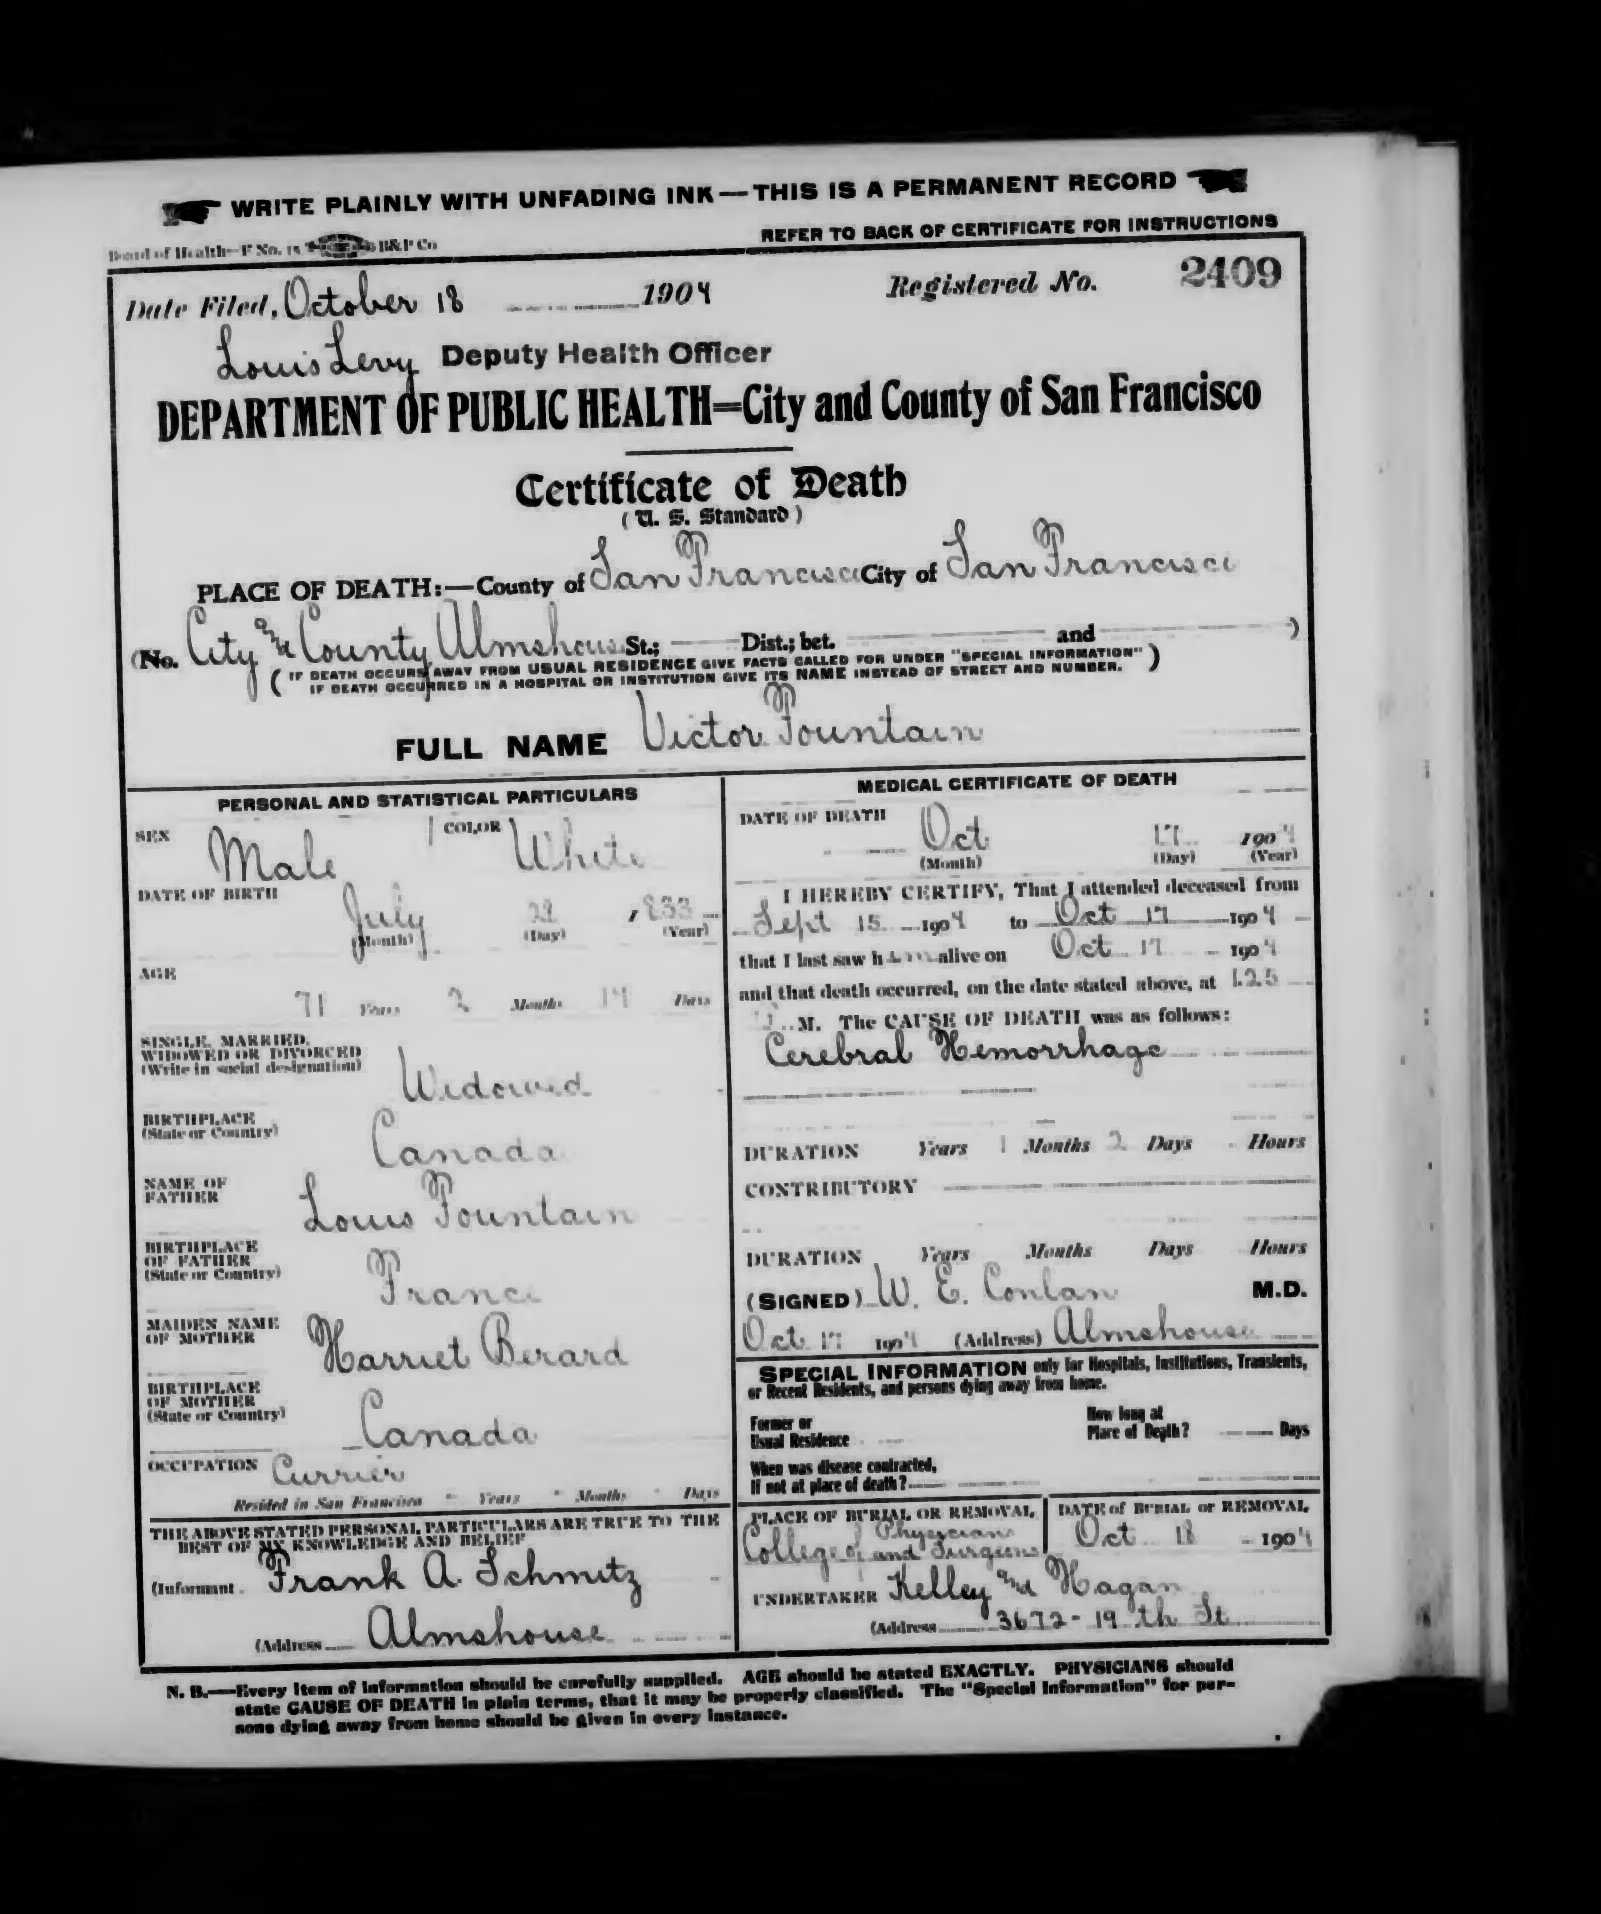 WRITE PLAINLY WITH UNFADING INK — THIS IS A PERMANENT RECORD
Board of Health—F No. 15 B&P Co
REFER TO BACK OF CERTIFICATE FOR INSTRUCTIONS
Date Filed, October 18 1904 Registered No. 2409
Louis Levy Deputy Health Officer
DEPARTMENT OF PUBLIC HEALTH=City and County of San Francisco
Certificate of Death
(U. S. Standard)
PLACE OF DEATH:—County of San Francisco City of San Francisco
(No. City and County Almshouse St.; Dist.; bet. and )
(IF DEATH OCCURS AWAY FROM USUAL RESIDENCE GIVE FACTS CALLED FOR UNDER "SPECIAL INFORMATION"
IF DEATH OCCURRED IN A HOSPITAL OR INSTITUTION GIVE ITS NAME INSTEAD OF STREET AND NUMBER.)
FULL NAME Victor Fountain
PERSONAL AND STATISTICAL PARTICULARS
SEX Male COLOR White
DATE OF BIRTH July 1833
(Month) (Day) (Year)
AGE
71 Years 2 Months 19 Days
SINGLE, MARRIED,
WIDOWED OR DIVORCED
(Write in social designation) Widowed
BIRTHPLACE
(State or Country) Canada
NAME OF
FATHER Louis Fountain
BIRTHPLACE
OF FATHER
(State or Country) France
MAIDEN NAME
OF MOTHER Harriet Berard
BIRTHPLACE
OF MOTHER
(State or Country) Canada
OCCUPATION Currier
Resided in San Francisco Years Months Days
THE ABOVE STATED PERSONAL PARTICULARS ARE TRUE TO THE
BEST OF MY KNOWLEDGE AND BELIEF
(Informant Frank A. Schmitz
(Address Almshouse
MEDICAL CERTIFICATE OF DEATH
DATE OF DEATH
Oct 17 1904
(Month) (Day) (Year)
I HEREBY CERTIFY, That I attended deceased from
Sept 15 1904 to Oct 17 1904
that I last saw him alive on Oct 17 1904
and that death occurred, on the date stated above, at 1.25
P. M. The CAUSE OF DEATH was as follows:
Cerebral Hemorrhage
DURATION Years 1 Months 2 Days Hours
CONTRIBUTORY
DURATION Years Months Days Hours
(SIGNED) W. E. Conlan M.D.
Oct 17 1904 (Address) Almshouse
SPECIAL INFORMATION only for Hospitals, Institutions, Transients,
or Recent Residents, and persons dying away from home.
Former or
Usual Residence
How long at
Place of Death? Days
When was disease contracted,
If not at place of death?
PLACE OF BURIAL OR REMOVAL
College of Physicians
and Surgeons
DATE of BURIAL or REMOVAL
Oct 18 1904
UNDERTAKER Kelley and Hagan
(Address 3672 - 19th St
N. B.—Every item of information should be carefully supplied. AGE should be stated EXACTLY. PHYSICIANS should
state CAUSE OF DEATH in plain terms, that it may be properly classified. The "Special Information" for per-
sons dying away from home should be given in every instance.